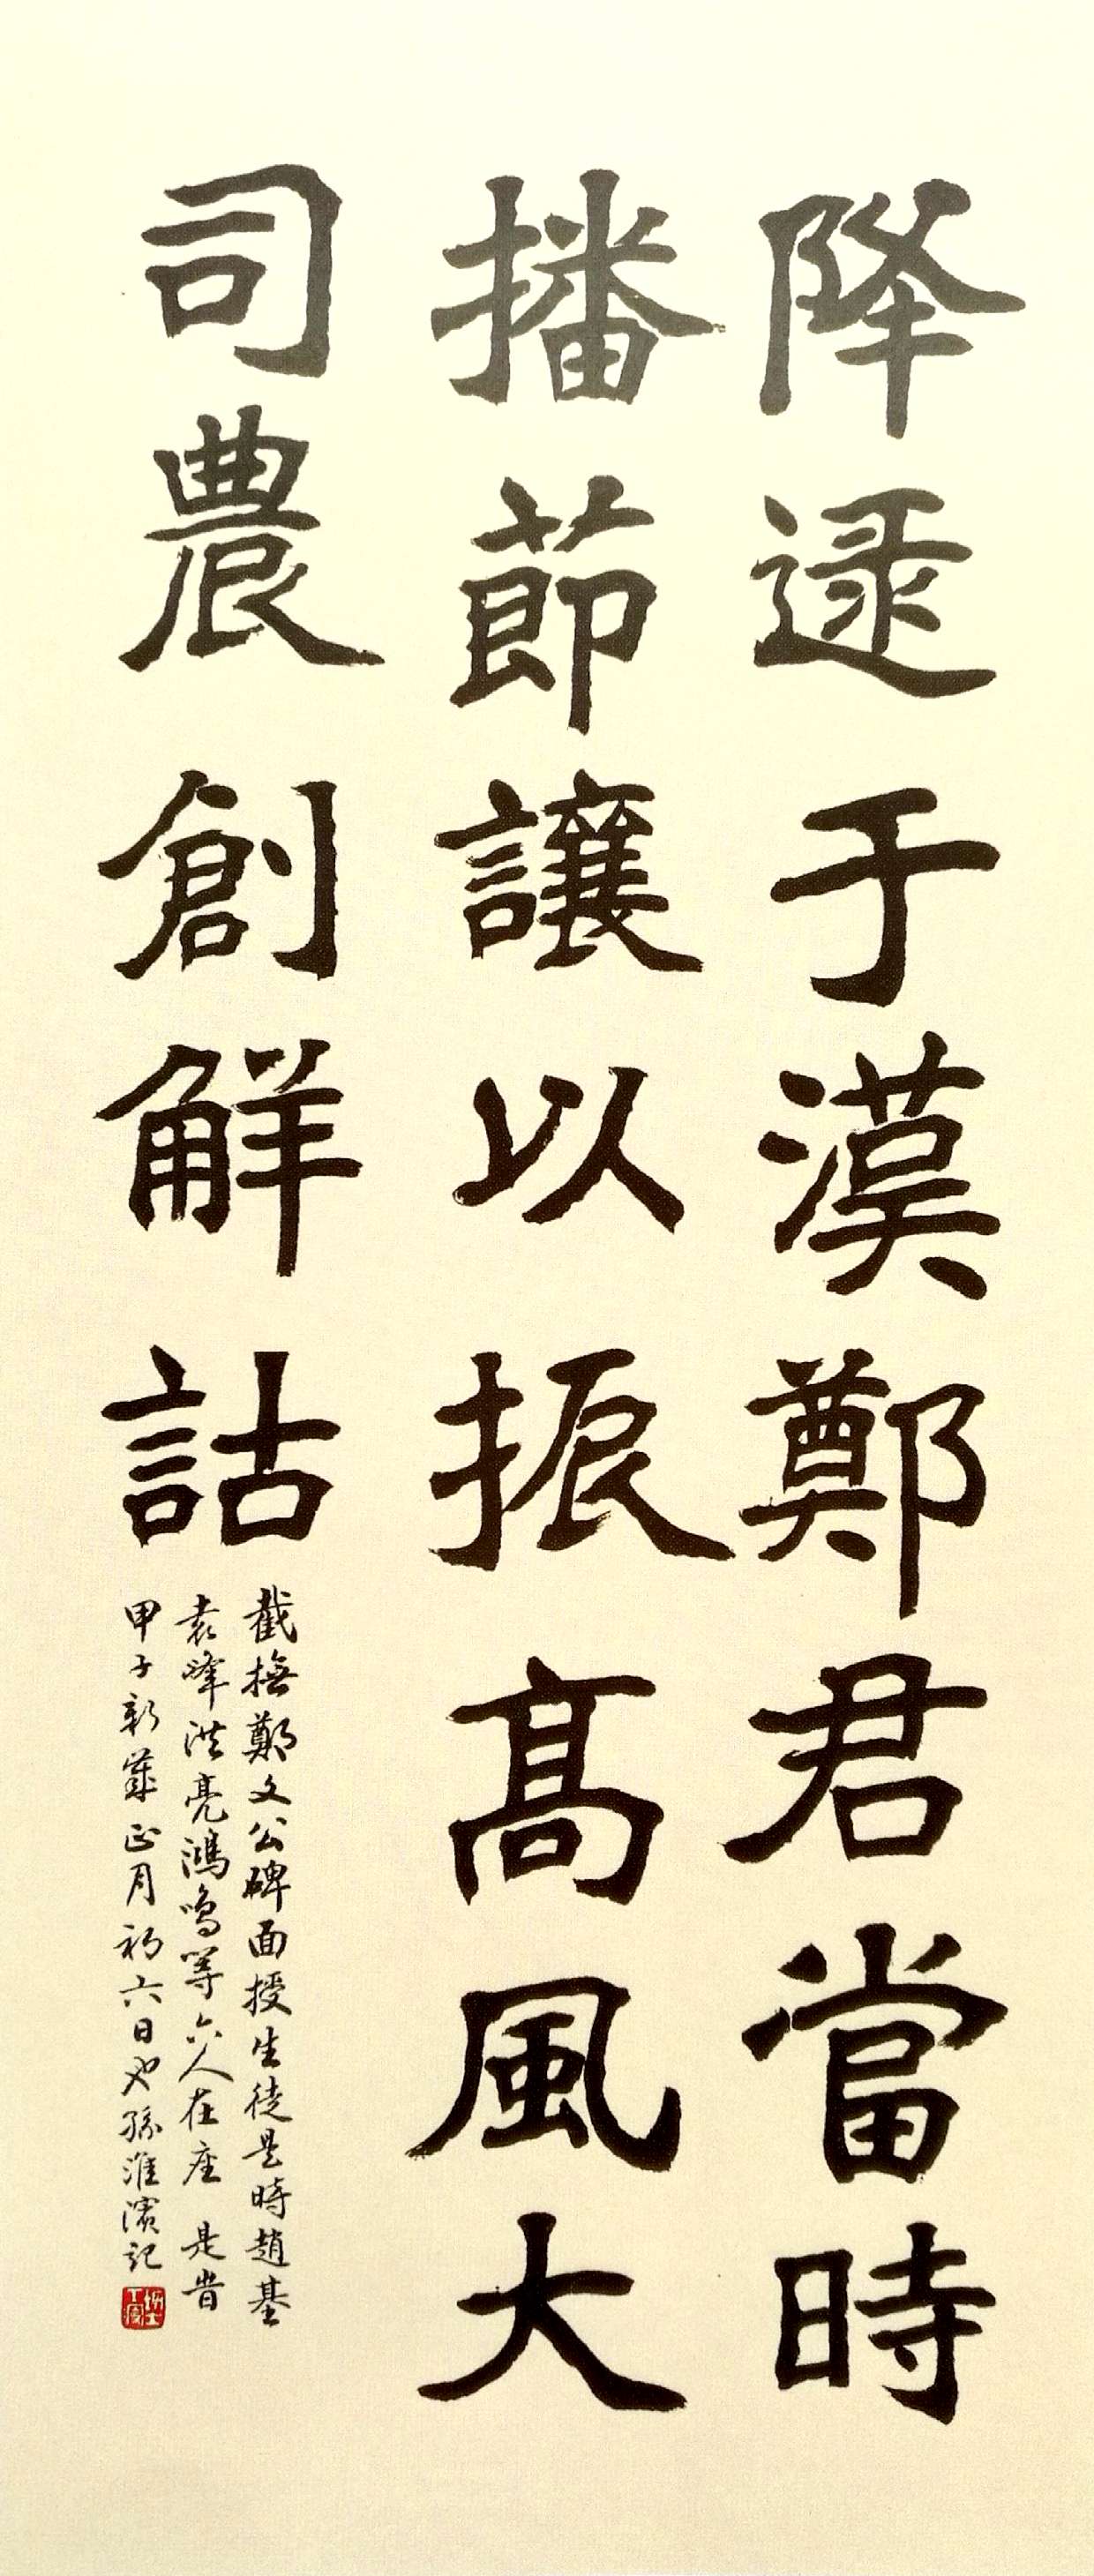 降逯于漢鄭君當時
播節讓以振高風大
司農創解詁
截撫鄭文公碑面授生徒是時趙基
袁峰洪亮鴻鳴等六人在座是昔
甲子新歲正月初六日也孫淮濱記